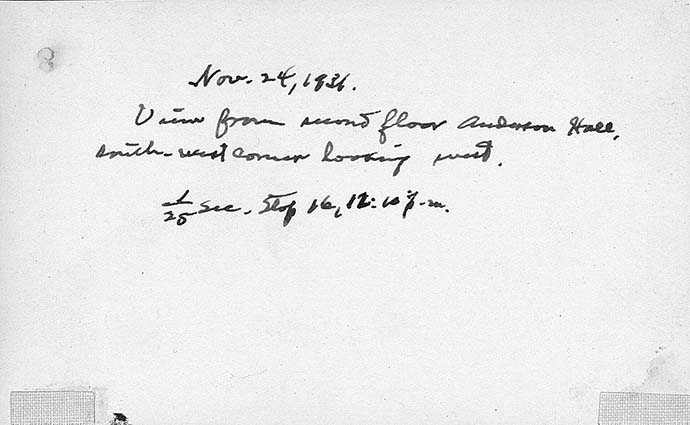 Nov. 24, 1931.
View from second floor Anderson Hall,
south-west corner looking west.
1/25 Sec. Stop 16, 12:10 p.m.